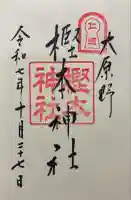 大原野
樫本神社
樫本神社
令和七年十月二十七日